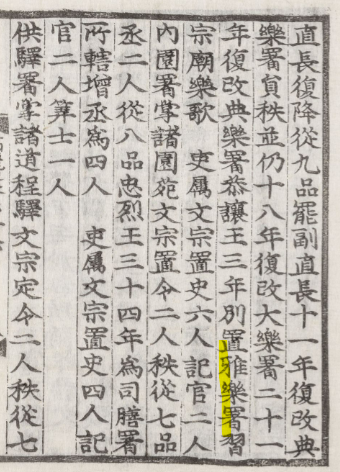 直長復降從九品罷副直長十一年復改典
樂署員秩並仍十八年復改大樂署二十一
年復改典樂署恭讓王三年別置雅樂署習
宗廟樂歌　吏屬文宗置史六人記官二人
內園署掌諸園苑文宗置令二人秩從七品
丞二人從八品忠烈王三十四年爲司膳署
所轄增丞爲四人　吏屬文宗置史四人記
官二人筭士一人
供驛署掌諸道程驛文宗定令二人秩從七